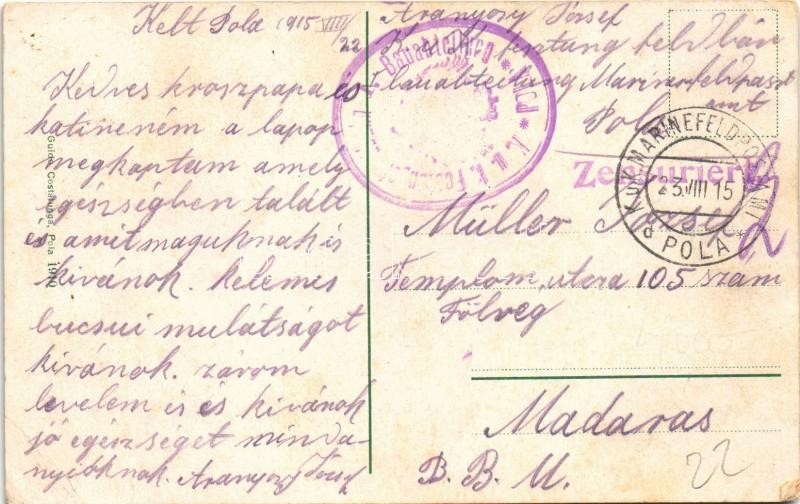 Kelt Pola 1915 VIII/22
Kedves kroszpapa és
katineném a lapop
megkaptam amely
egészségben talált
és amit maguknak is
kivánok. kelemes
bucsui mulátságot
kivánok. zárom
levelem is és kivánok
jó egészséget minda-
nyióknak. Aranyosy József
Guido Costalunga, Pola 1910
Aranyosy József
Festung feldbán
bauabteilung Marinefeldpost
amt
Pola
K. u. K. Festungs Bauabteilung Pola
Zensuriert
K.U.K. MARINEFELDPOSTAMT
23.VIII 15
d POLA *
Müller József
Templom, utcza 105 szám
Fölveg
Madaras
B. B. M.
22